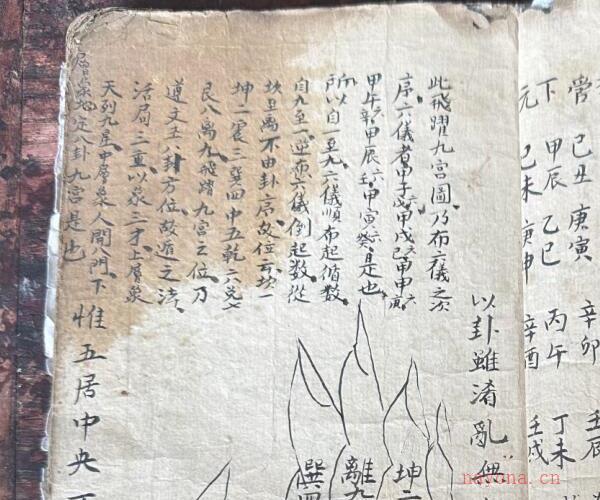 己丑 庚寅 辛卯 壬辰
下 甲辰 乙巳 丙午 丁未
元 己未 庚申 辛酉 壬戌
以卦雖淆亂無
此飛躍九宮圖乃布六儀之次
序六儀者甲子六甲戊甲戌己甲申六庚
甲午六辛甲辰六壬甲寅六癸是也
所以自一至九六儀順布起循數
自九至一逆布六儀倒起數從
坎至离不由卦序故位云坎一
坤二震三巽四中五乾六兌七
艮八离九飛躍九宮之位乃
遵文王八卦方位故遁之法
活局三重以象三才上層象
天列九星中層象人開八門下
層象地定八卦九宮是也
惟五居中央
坤二
離九
巽四
nayona.cn